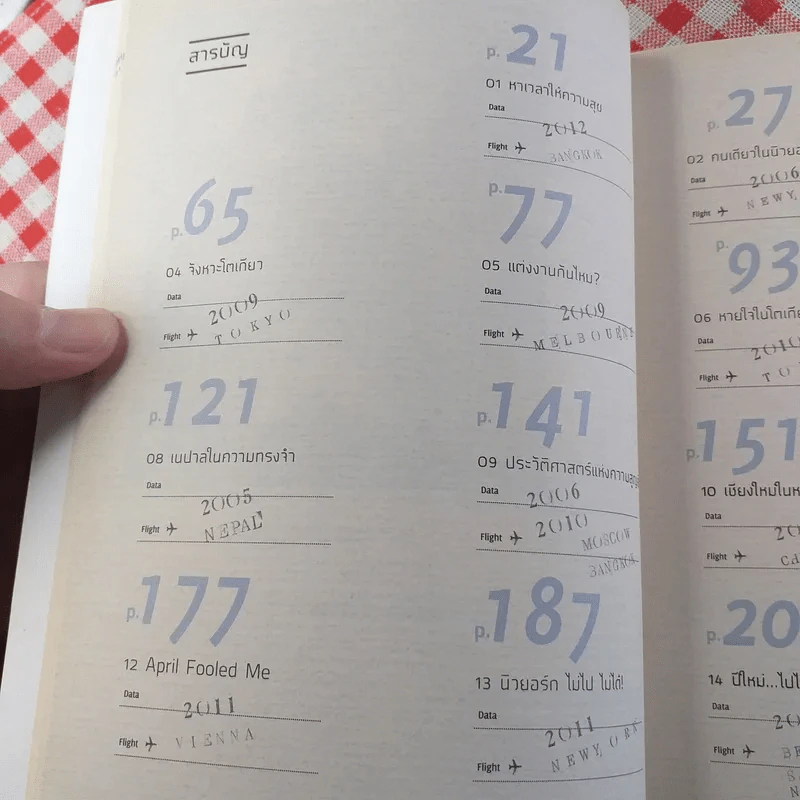 สารบัญ
p.21
01 หาเวลาให้ความสุข
Data 2012
Flight BANGKOK
p.65
04 จังหวะโตเกียว
Data 2009
Flight TOKYO
p.77
05 แต่งงานกันไหม?
Data 2009
Flight MELBOURNE
p.121
08 เนปาลในความทรงจำ
Data 2005
Flight NEPAL
p.141
09 ประวัติศาสตร์แห่งความ
Data 2006
Flight 2010 MOSCOW
BANGKOK
p.177
12 April Fooled Me
Data 2011
Flight VIENNA
p.187
13 นิวยอร์ก ไม่ไป ไม่ได้!
Data 2011
Flight NEWYORK
p.27
02 คนเดียวในนิวยอ
Data 2006
Flight NEWY
p.93
06 หายใจในโตเกีย
Data 2010
Flight TO
p.151
10 เชียงใหม่ในห
Data 20
Flight
p.20
14 ปีใหม่...ไปไ
Data 20
Flight BE
S
N